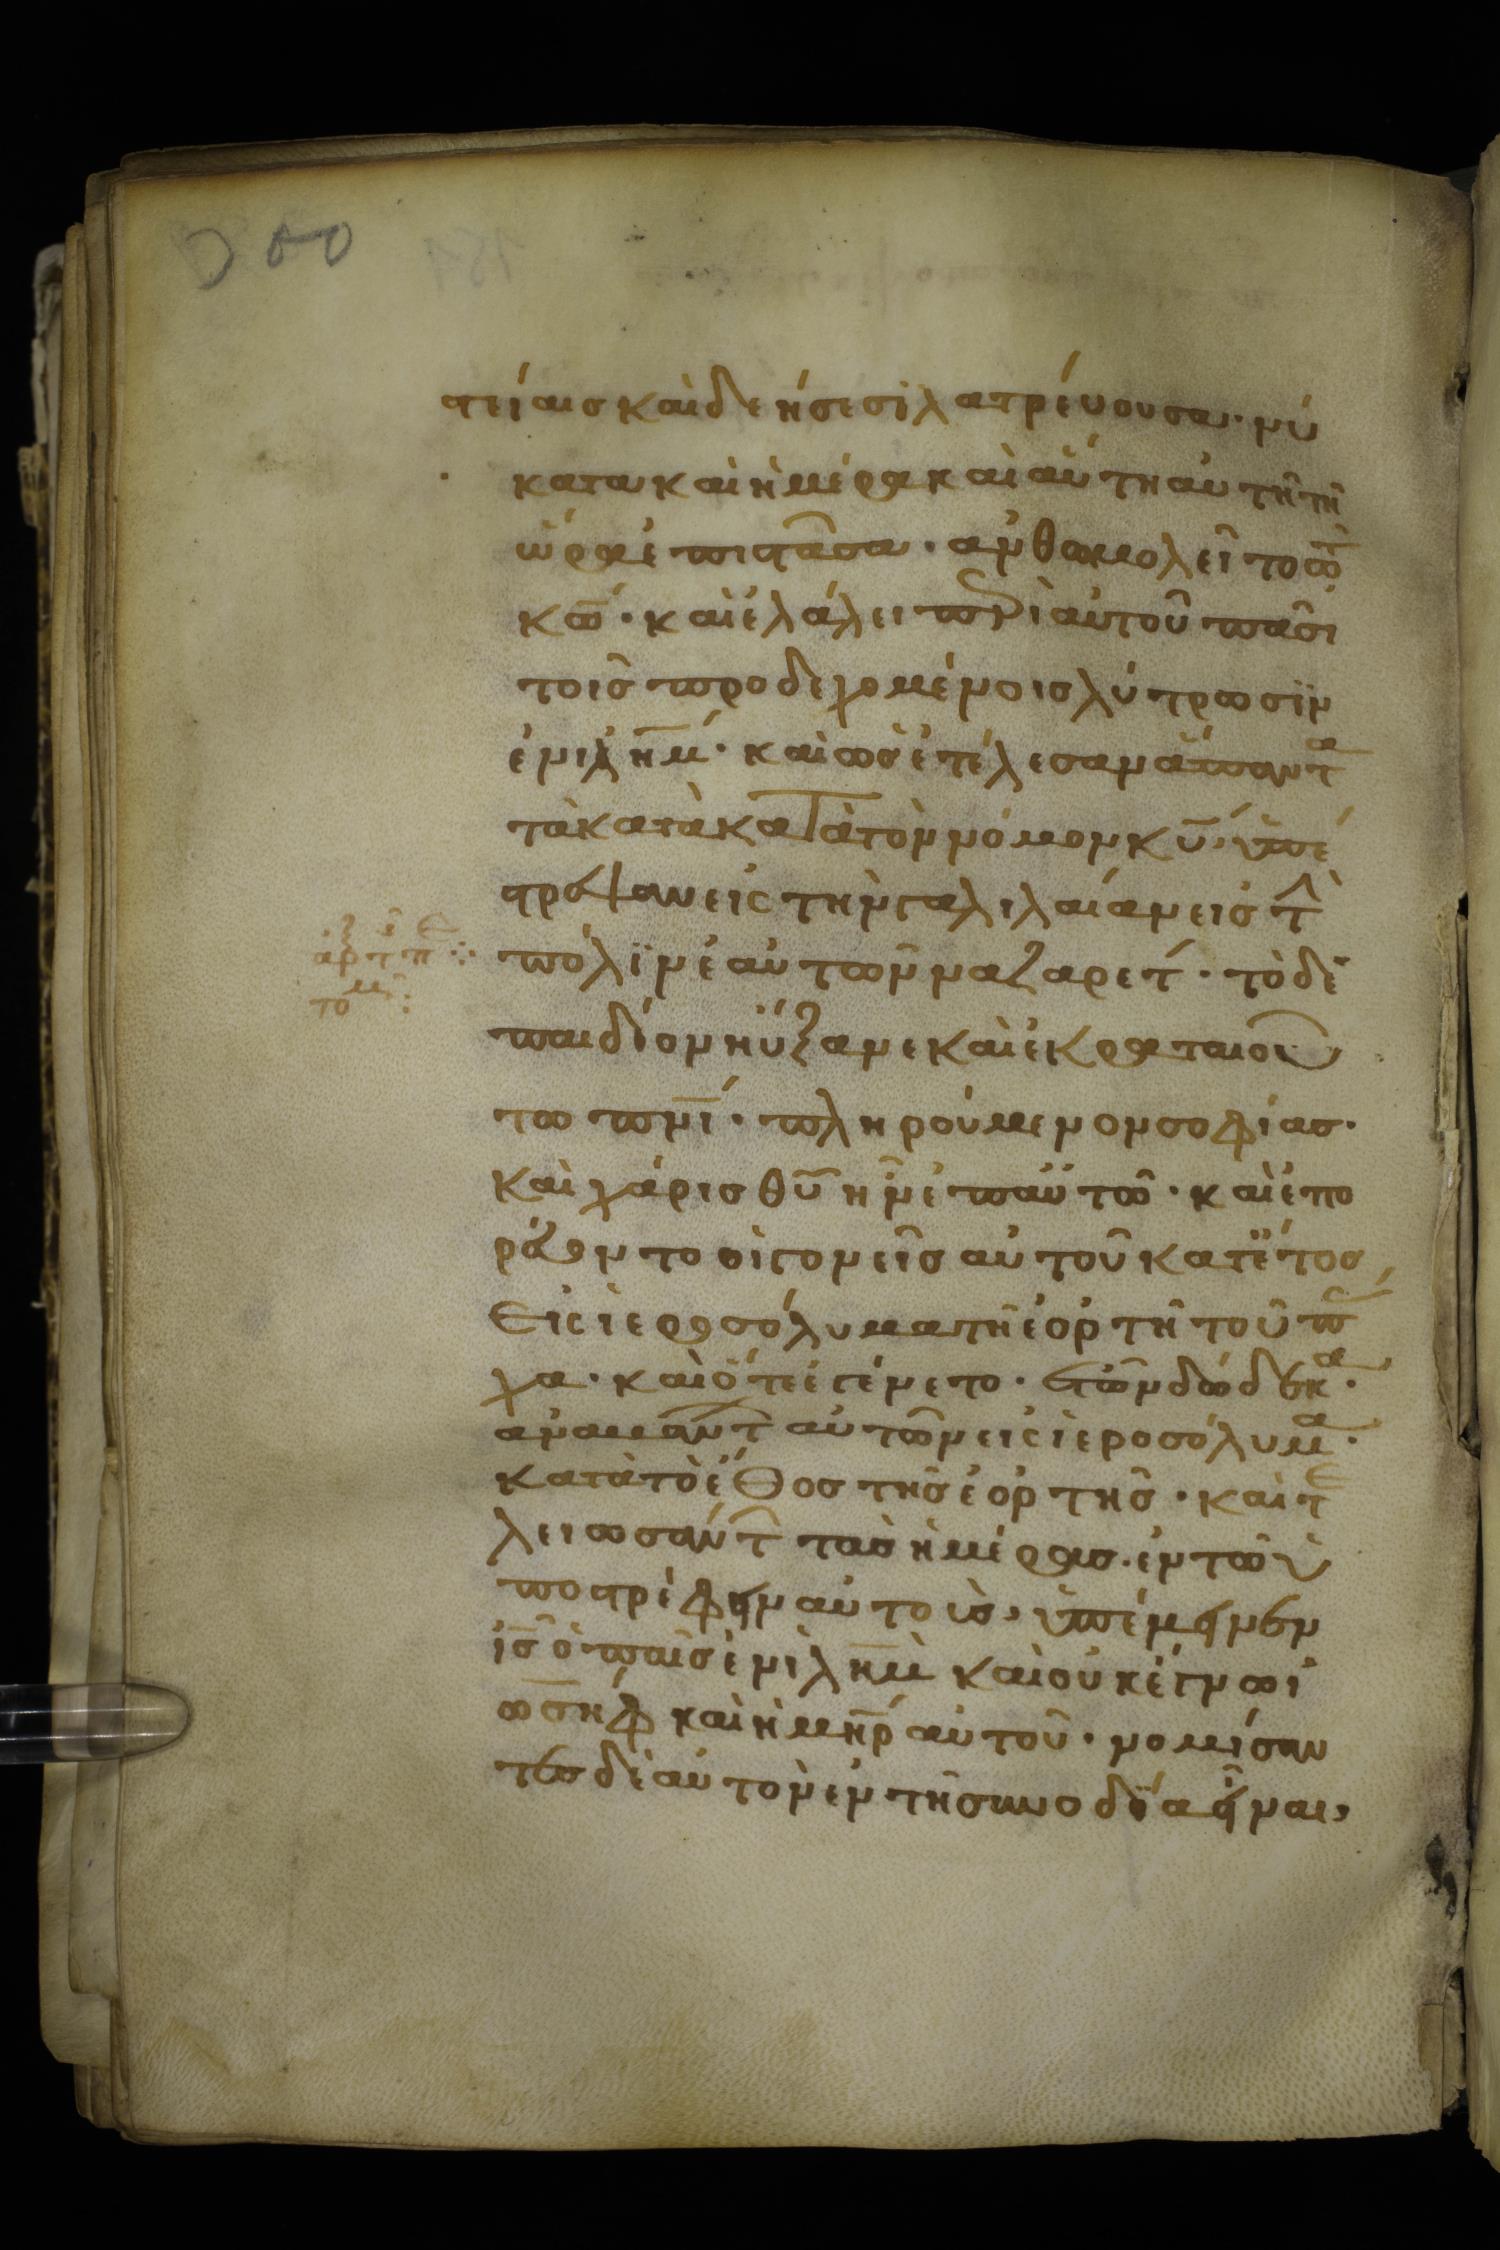 στείαις καὶ δεήσεσϊ λατρέυουσα· νύ
κατα καὶ ἡμέρα καὶ αὕτη αὐτῆ τῆ
ὥρα ἐπιστᾶσα· ἀνθωμολεῖτο τῶ
κω̄· καὶ ἐλάλει περὶ αὐτοῦ πᾶσι
τοῖς προδεχομένοις λύτρωσϊν
ἐν ιλ̄ημ̄· καὶ ὡς ἐτέλεσαν ἅπαντα
τὰ κατὰ κατὰ τὸν νόμον κῡ, ὑπέ
στρεψαν εἰς τὴν γαλιλαίαν εἰς τὴν
πόλϊν ἑαυτῶν ναζαρέτ· τὸ δὲ
παιδίον ηὔξανε καὶ ἐκραταιοῦ
το πν̄ι· πληρούμενον σοφίας·
καὶ χάρις θῡ ἦν ἐπ αὐτῶ· καὶ ἐπο
ρέυοντο οἱ γονεῖς αὐτοῦ κατ ἔτος
εἰς ἱεροσόλυμα τῆ ἑορτῆ τοῦ πάσ
χα· καὶ ὅτε ἐγένετο· ἐτῶν δώδεκα·
ἀναβάντων αὐτῶν εἰς ἱεροσόλυμα·
κατὰ τὸ ἔθος τῆς ἑορτῆς· καὶ τε
λειωσάντων τὰς ἡμέρας· ἐν τῶ ὑ
ποστρέφειν αὐτοὺς, ὑπέμεινεν
ις̄ ὁ παῖς ἐν ιλ̄ημ̄ καὶ οὐκ έγνω ἰ
ωσὴφ καὶ ἡ μη̄ρ αὐτοῦ· νομίσαν
τες δὲ αὐτὸν ἐν τῆ συνοδία εἶναι,